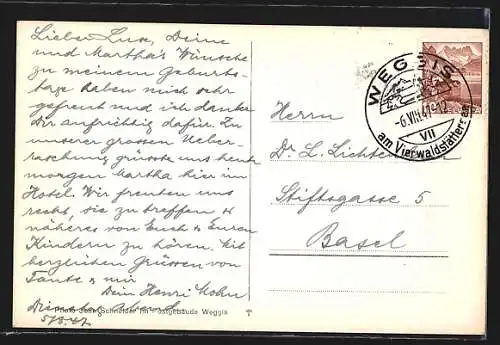 Lieber Lux, Deine
und Martha's Wünsche
zu meinem Geburts-
tage haben mich sehr
gefreut und ich danke
Dir aufrichtig dafür. Zu
unserer grossen Ueber-
raschung grüsste uns heute
morgen Martha hier im
Hotel. Wir freuten uns
recht, sie zu treffen &
näheres von Euch & Euren
Kindern zu hören. Mit
herzlichen Grüssen von
Tante & mir
Dein Henri Mohn
Photo Josef Schneider im Postgebäude Weggis
5/8.47
WEGGIS
-6.VIII.47-12
VII
am Vierwaldstättersee
Herrn
Dr. L.
Stiftsgasse 5
Basel